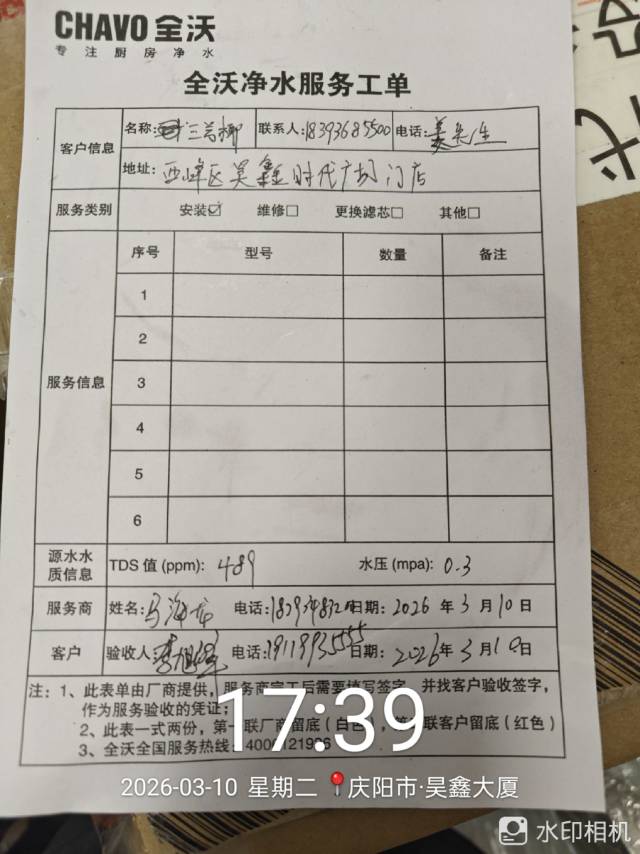 CHAVO 全沃
专注厨房净水
全沃净水服务工单
客户信息
名称: 联系人: 18393685500 电话: 姜先生
地址: 西峰区昊鑫时代广场门店
服务类别 安装☑ 维修□ 更换滤芯□ 其他□
服务信息
序号 型号 数量 备注
1
2
3
4
5
6
源水水质信息 TDS 值 (ppm): 489 水压 (mpa): 0.3
服务商 姓名: 马海龙 电话: 日期: 2026 年 3 月 10 日
客户 验收人: 电话: 19119935555 日期: 2026 年 3 月 10 日
注: 1、此表单由厂商提供,服务商完工后需要填写签字,并找客户验收签字,
作为服务验收的凭证;
2、此表一式两份,第一联厂商留底(白色),第二联客户留底(红色)
3、全沃全国服务热线:
17:39
2026-03-10 星期二 庆阳市·昊鑫大厦
水印相机